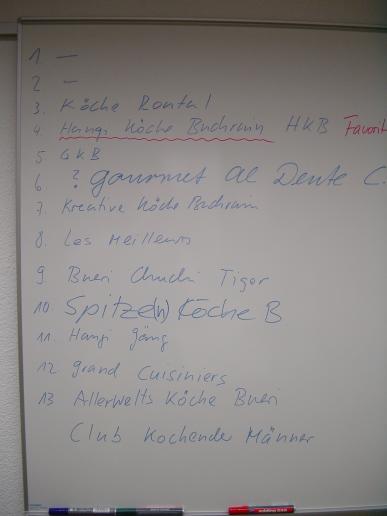 1 —
2 —
3. Köche Rontal
4. Hangi Köche Buchrain HKB Favorit
5 GKB
6 ? gourmet al Dente C.
7. Kreative Köche Buchrain
8. Les Meilleurs
9 Bueri Chuchi Tiger
10. Spitze(n) Köche B
11. Hangi Gäng
12 grand Cuisiniers
13 Allerwelts Köche Bueri
Club Kochender Männer